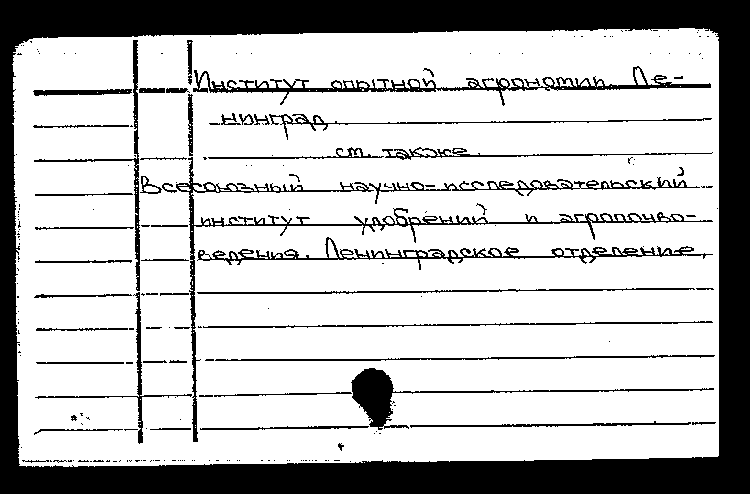 Институт опытной агрономии. Ле-
нинград.
см. также
Всесоюзный научно-исследовательский
институт удобрений и агропочво-
ведения. Ленинградское отделение.